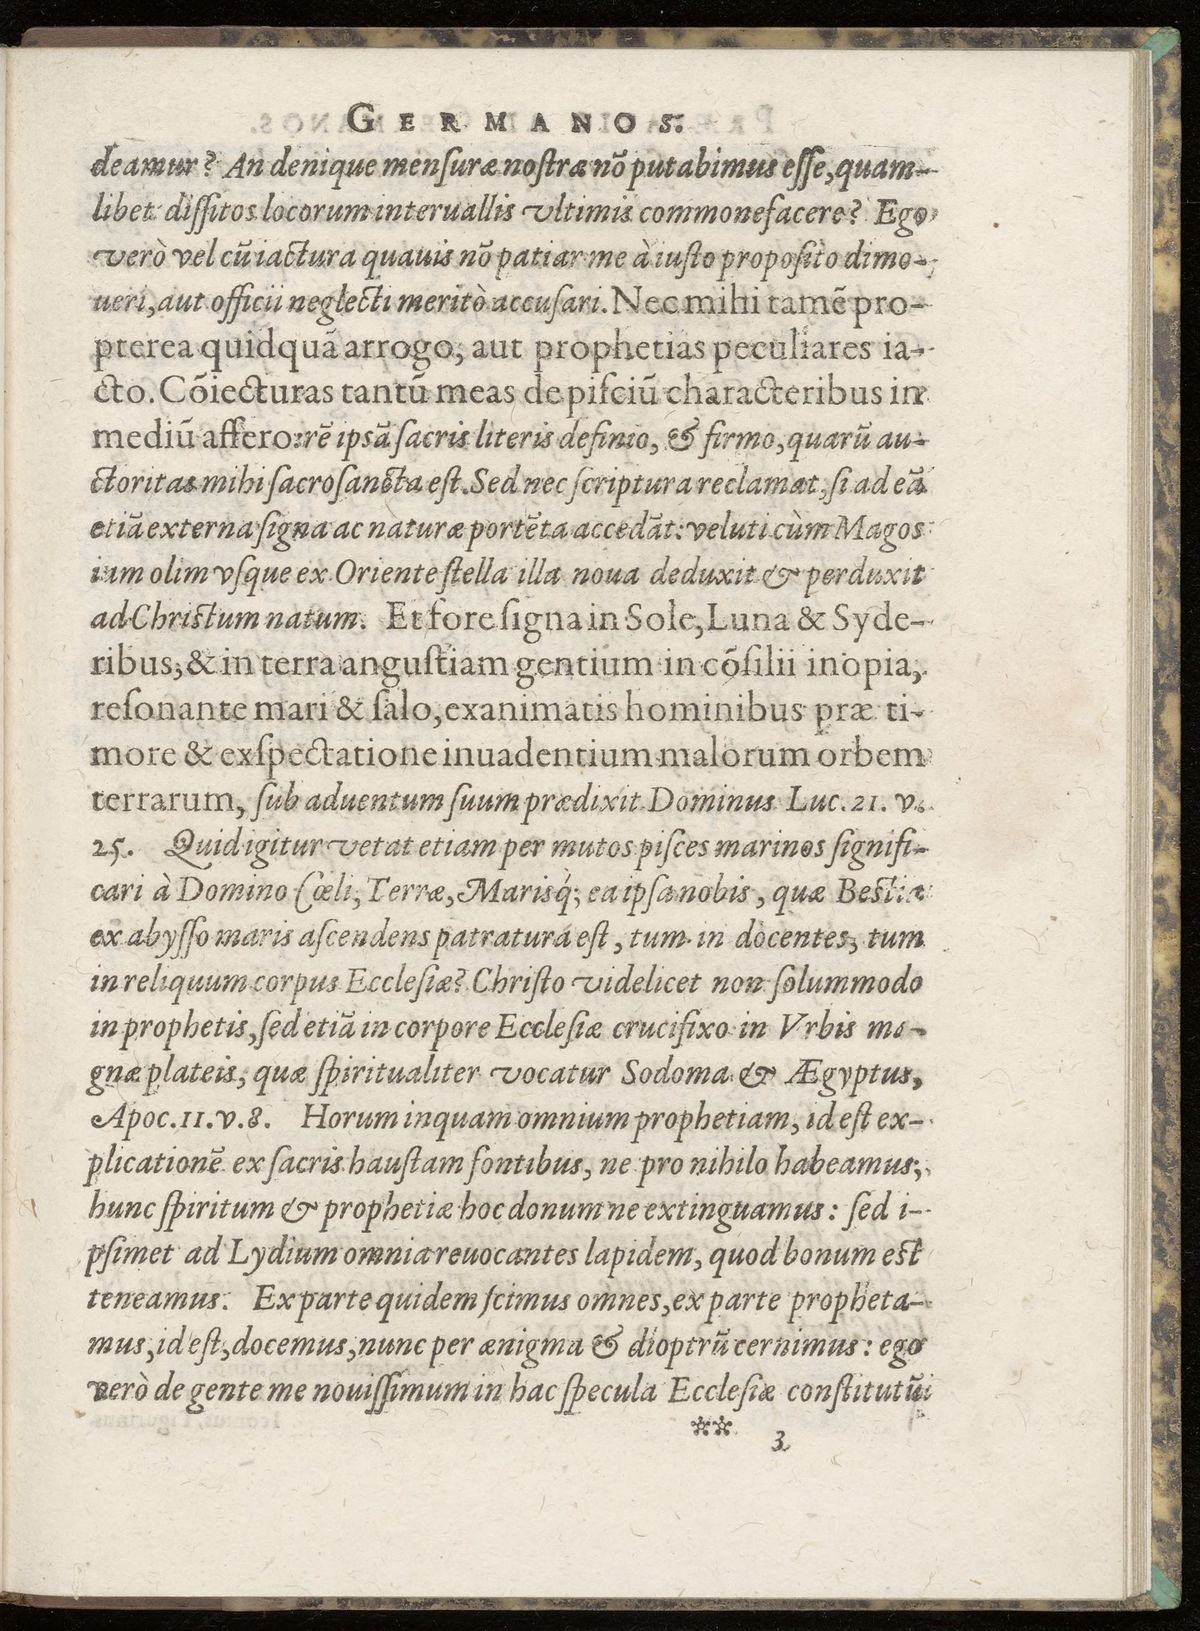 GERMANOS.
deamur? An denique menſuræ noſtræ nõ putabimus eſſe, quam-
libet diſſitos locorum interuallis vltimis commonefacere? Ego
verò vel cũ iactura quauis nõ patiar me à iuſto propoſito dimo-
ueri, aut officii neglecti meritò accuſari. Nec mihi tamẽ pro-
pterea quidquã arrogo, aut prophetias peculiares ia-
cto. Cõiecturas tantũ meas de piſciũ characteribus in
mediũ affero: rẽ ipsã ſacris literis definio, & firmo, quarũ au-
ctoritas mihi ſacroſancta eſt. Sed nec ſcriptura reclamat, ſi ad eã
etiã externa ſigna ac naturæ portẽta accedãt: veluti cùm Magos
iam olim vſque ex Oriente ſtella illa noua deduxit & perduxit
ad Chriſtum natum. Et fore ſigna in Sole, Luna & Syde-
ribus, & in terra anguſtiam gentium in cõſilii inopia,
reſonante mari & ſalo, exanimatis hominibus præ ti-
more & exſpectatione inuadentium malorum orbem
terrarum, ſub aduentum ſuum prædixit Dominus Luc. 21. v.
25. Quid igitur vetat etiam per mutos piſces marinos ſignifi-
cari à Domino Cœli, Terræ, Marisq́; ea ipſa nobis, quæ Beſtia
ex abyſſo maris aſcendens patratura eſt, tum in docentes, tum
in reliquum corpus Eccleſiæ? Chriſto videlicet non ſolummodo
in prophetis, ſed etiã in corpore Eccleſiæ crucifixo in Vrbis ma-
gnæ plateis, quæ ſpiritualiter vocatur Sodoma & Ægyptus,
Apoc. 11. v. 8. Horum inquam omnium prophetiam, id eſt ex-
plicationẽ ex ſacris hauſtam fontibus, ne pro nihilo habeamus,
hunc ſpiritum & prophetiæ hoc donum ne extinguamus: ſed i-
pſimet ad Lydium omnia reuocantes lapidem, quod bonum eſt
teneamus. Ex parte quidem ſcimus omnes, ex parte propheta-
mus, id eſt, docemus, nunc per ænigma & dioptrũ cernimus: ego
verò de gente me nouiſſimum in hac ſpecula Eccleſiæ conſtitutũ
** 3